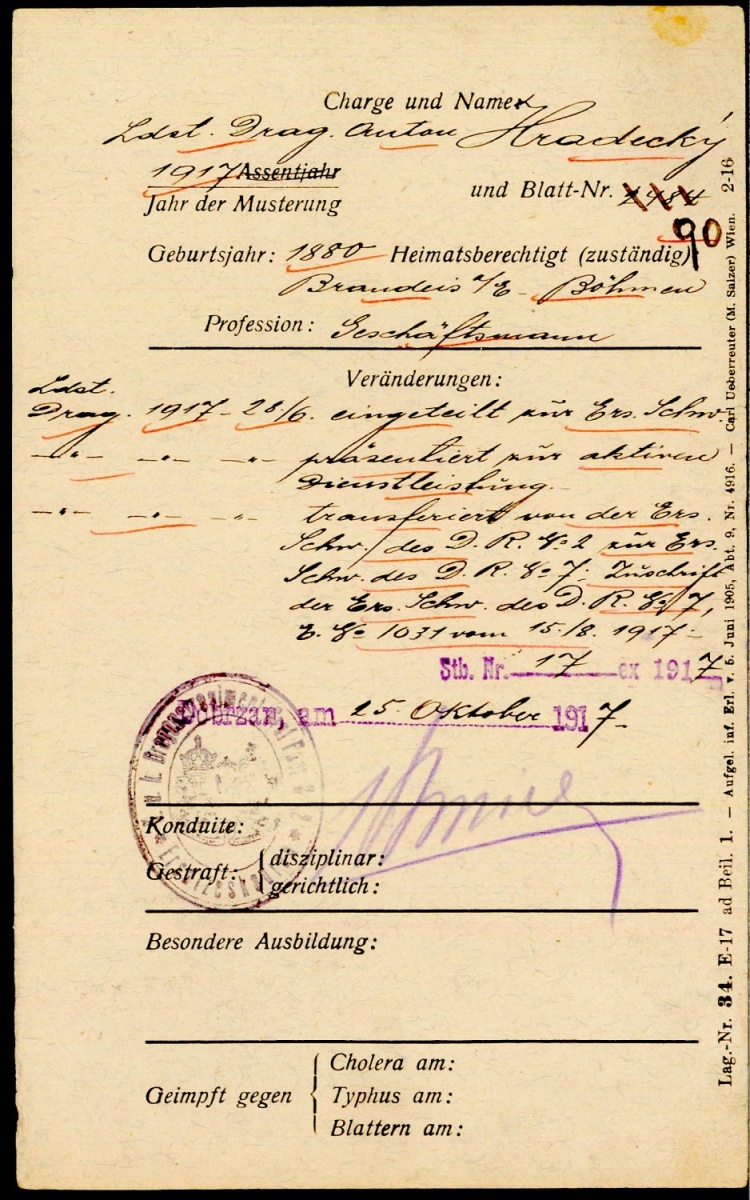 Charge und Name
Ldst. Drag. Anton Hradecký
1917 Assentjahr
Jahr der Musterung
und Blatt-Nr.
90
Geburtsjahr: 1880 Heimatsberechtigt (zuständig)
Brandeis a/E Böhmen
Profession: Geschäftsmann
Veränderungen:
Ldst.
Drag. 1917 28/6. eingeteilt zur Ers. Schw.
—"— —"— —"— präsentiert zur aktiven
Dienstleistung.
—"— —"— —"— transferiert von der Ers.
Schw. des D. R. No 2 zur Ers.
Schw. des D. R. No 7; Zuschrift
der Ers. Schw. des D. R. No 7,
E. No 1031 vom 15./8. 1917.
Stb. Nr. 17 ex 1917
Dobrzan, am 25. Oktober 1917.
Konduite:
Gestraft: { disziplinar:
gerichtlich:
Besondere Ausbildung:
Geimpft gegen { Cholera am:
Typhus am:
Blattern am:
Lag.-Nr. 34. E-17 ad Beil. 1. — Aufgel. inf. Erl. v. 5. Juni 1905, Abt. 9, Nr. 4916. — Carl Ueberreuter (M. Salzer) Wien. 2-16